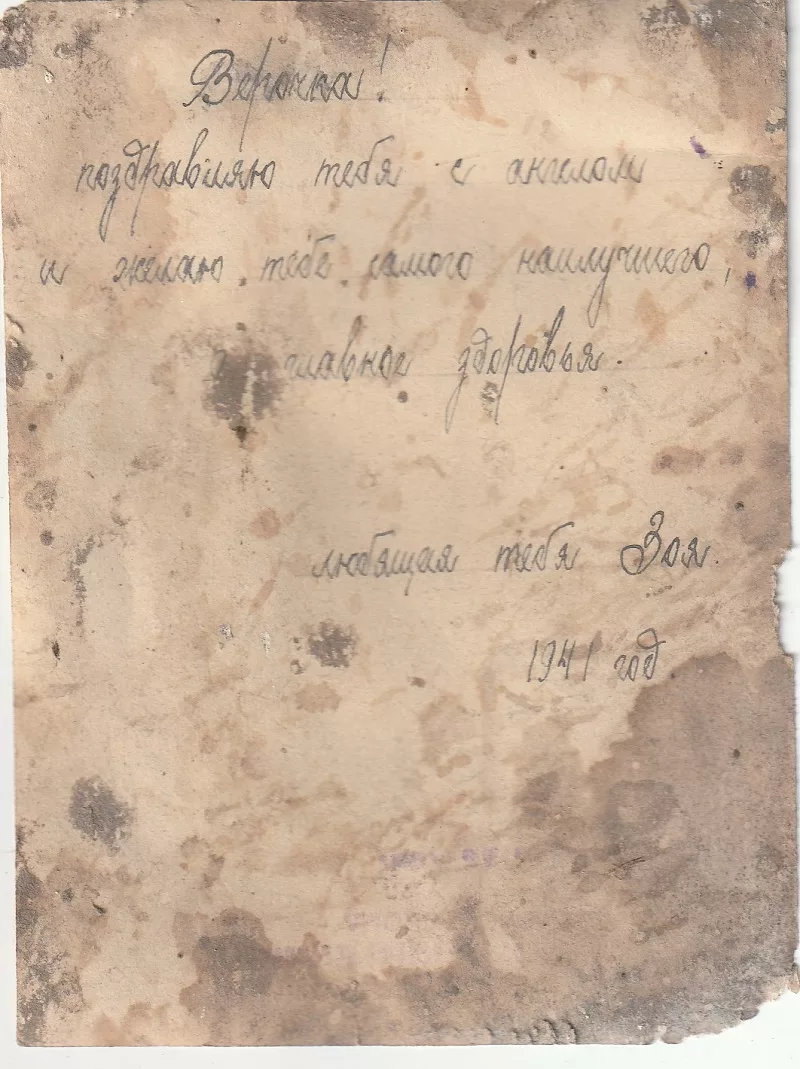 Верочка!
поздравляю тебя с ангелом
и желаю тебе самого наилучшего,
а главное здоровья.
любящая тебя Зоя.
1941 год